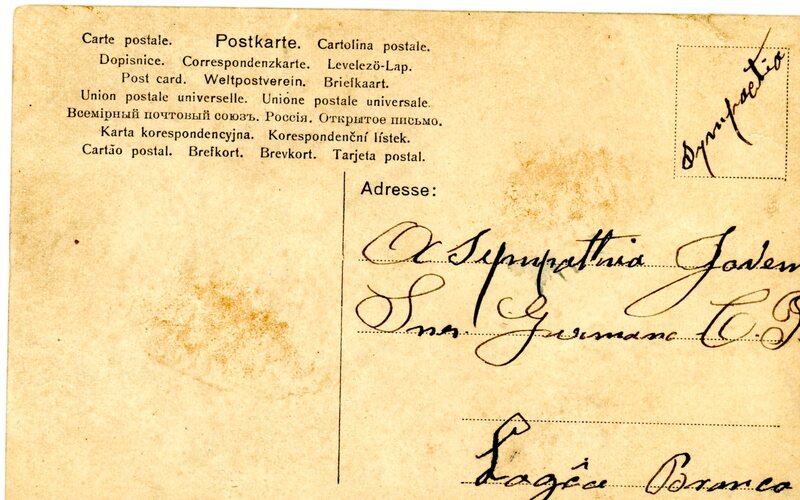 Carte postale. Postkarte. Cartolina postale.
Dopisnice. Correspondenzkarte. Levelező-Lap.
Post card. Weltpostverein. Briefkaart.
Union postale universelle. Unione postale universale.
Всемірный почтовый союзъ. Россія. Открытое письмо.
Karta korespondencyjna. Korespondenční lístek.
Cartão postal. Brefkort. Brevkort. Tarjeta postal.
Sympathia
Adresse:
A Sympathia Joven
Snr. Germano C. P
Lagôa Branca